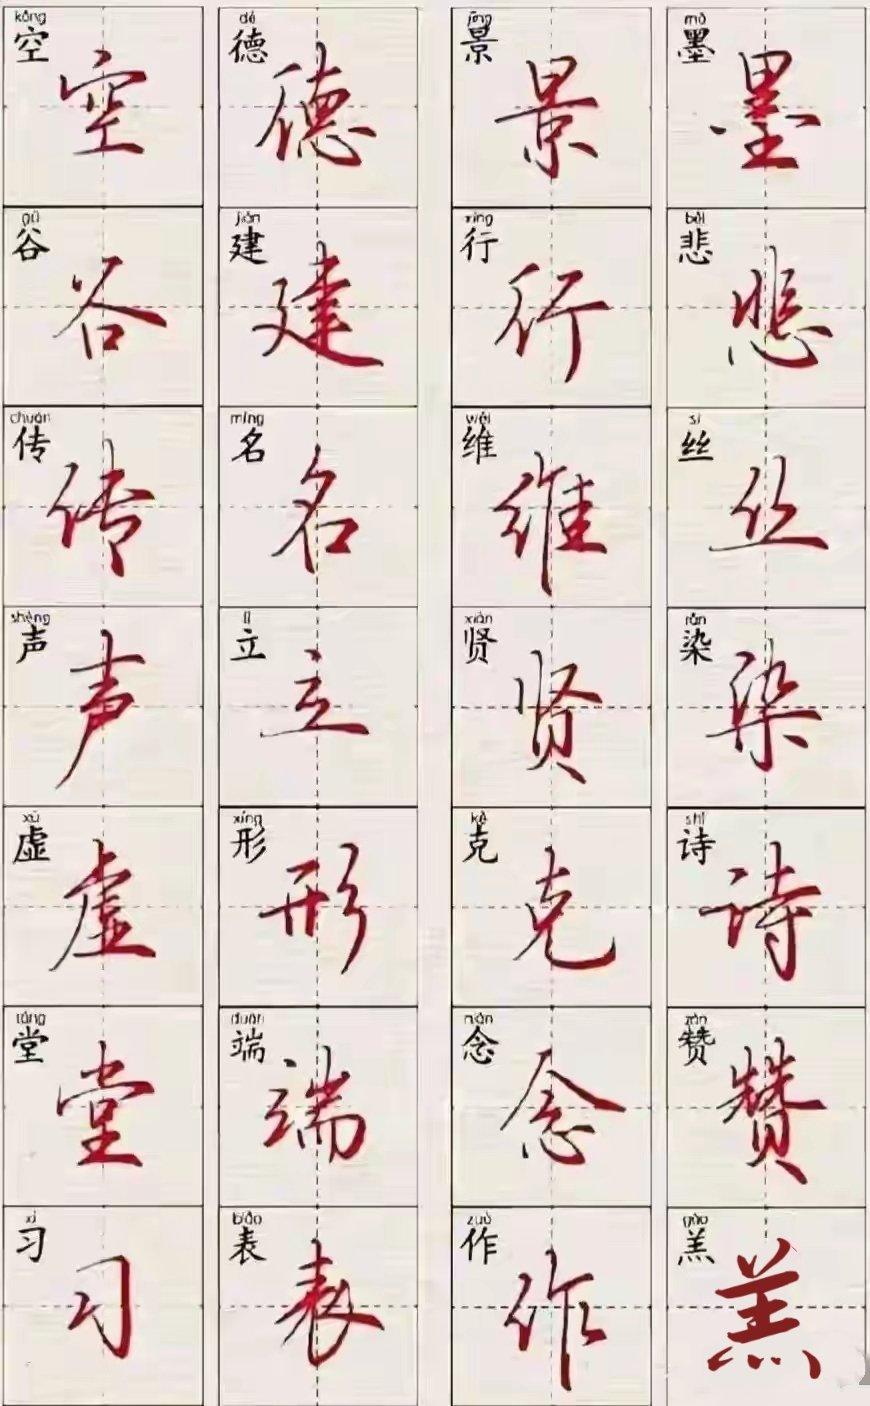 mò
墨
墨
bēi
悲
悲
sī
丝
丝
rǎn
染
染
shī
诗
诗
zàn
赞
赞
gāo
羔
羔
jǐng
景
景
xíng
行
行
wéi
维
维
xián
贤
贤
kè
克
克
niàn
念
念
zuò
作
作
dé
德
德
jiàn
建
建
míng
名
名
lì
立
立
xíng
形
形
duān
端
端
biǎo
表
表
kōng
空
空
gǔ
谷
谷
chuán
传
传
shēng
声
声
xū
虚
虚
táng
堂
堂
xí
习
习